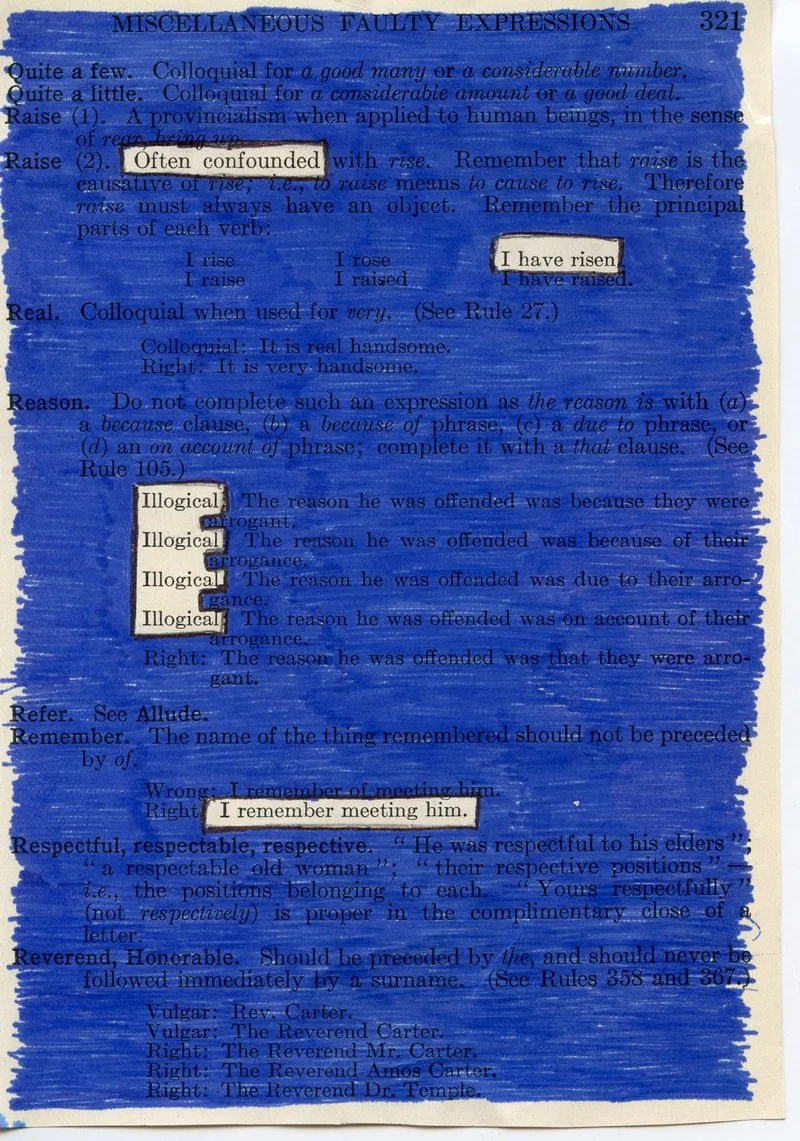 MISCELLANEOUS FAULTY EXPRESSIONS 321
Quite a few. Colloquial for a good many or a considerable number.
Quite a little. Colloquial for a considerable amount or a good deal.
Raise (1). A provincialism when applied to human beings, in the sense
of rear, bring up.
Raise (2). Often confounded with rise. Remember that raise is the
causative of rise; i.e., to raise means to cause to rise. Therefore
raise must always have an object. Remember the principal
parts of each verb:
I rise I rose I have risen
I raise I raised I have raised.
Real. Colloquial when used for very. (See Rule 27.)
Colloquial: It is real handsome.
Right: It is very handsome.
Reason. Do not complete such an expression as the reason is with (a)
a because clause, (b) a because of phrase, (c) a due to phrase, or
(d) an on account of phrase; complete it with a that clause. (See
Rule 105.)
Illogical: The reason he was offended was because they were
arrogant.
Illogical: The reason he was offended was because of their
arrogance.
Illogical: The reason he was offended was due to their arro-
gance.
Illogical: The reason he was offended was on account of their
arrogance.
Right: The reason he was offended was that they were arro-
gant.
Refer. See Allude.
Remember. The name of the thing remembered should not be preceded
by of.
Wrong: I remember of meeting him.
Right: I remember meeting him.
Respectful, respectable, respective. "He was respectful to his elders";
"a respectable old woman"; "their respective positions" —
i.e., the positions belonging to each. "Yours respectfully"
(not respectively) is proper in the complimentary close of a
letter.
Reverend, Honorable. Should be preceded by the, and should never be
followed immediately by a surname. (See Rules 358 and 367.)
Vulgar: Rev. Carter.
Vulgar: The Reverend Carter.
Right: The Reverend Mr. Carter.
Right: The Reverend Amos Carter.
Right: The Reverend Dr. Temple.